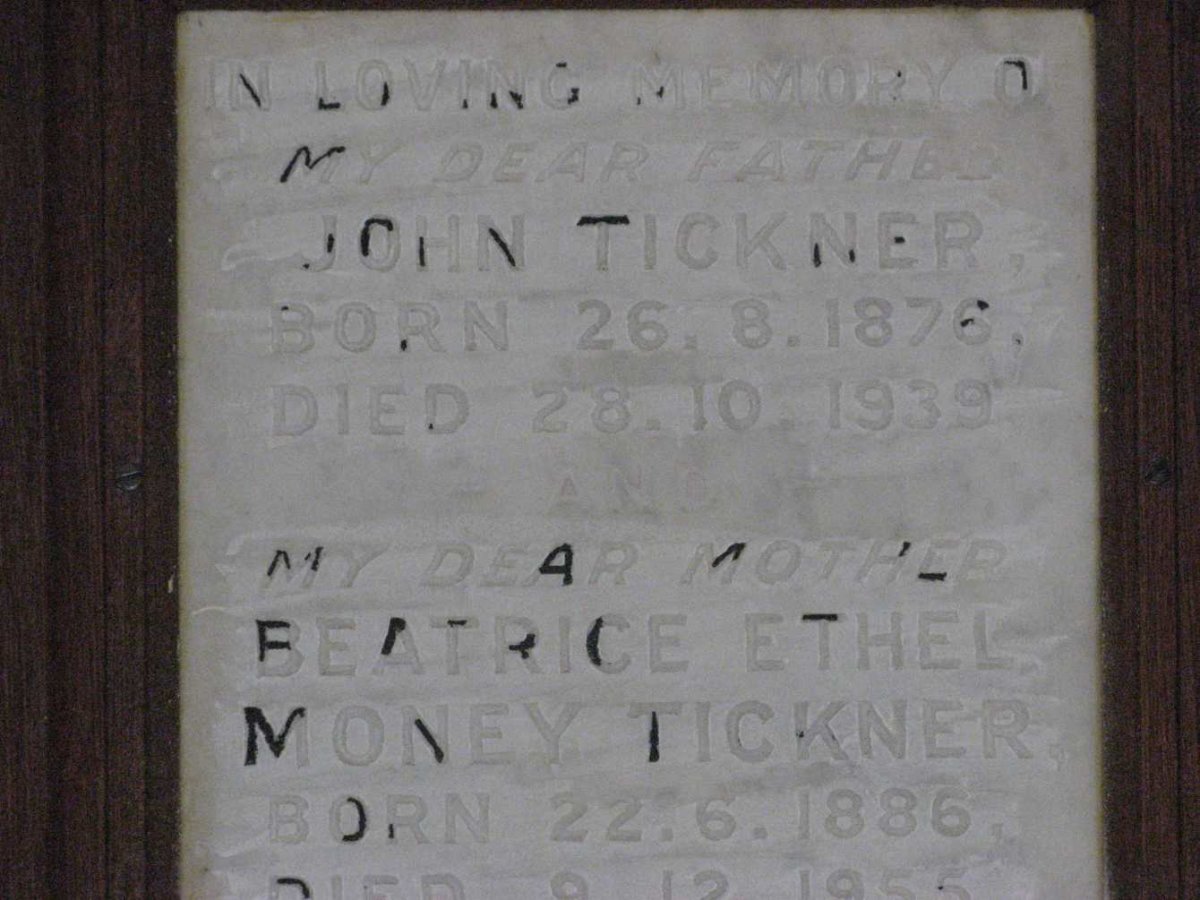 IN LOVING MEMORY O
MY DEAR FATHER
JOHN TICKNER,
BORN 26.8.1876,
DIED 28.10.1939
AND
MY DEAR MOTHER
BEATRICE ETHEL
MONEY TICKNER,
BORN 22.6.1886,
DIED 9.12.1955